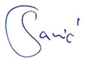 Savić